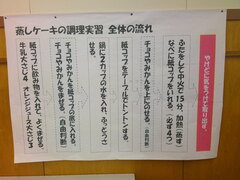 蒸しケーキの調理実習 全体の流れ
やけどに気をつけて取り出す。
ふたをして中火で15分、加熱(蒸す)
なべに紙コップをいれる(必ず4つ)
紙コップをテーブルでトントンする。
チョコやみかんを上にのせる。(自由判断)
鍋に2カップの水を入れ、ふっとう
チョコやみかんを紙コップの底に入れる。
チョコやみかんをまぜる。(自由判断)
紙コップに飲み物を入れ、よくまぜる。
牛乳大さじ4 オレンジジュース大さじ3